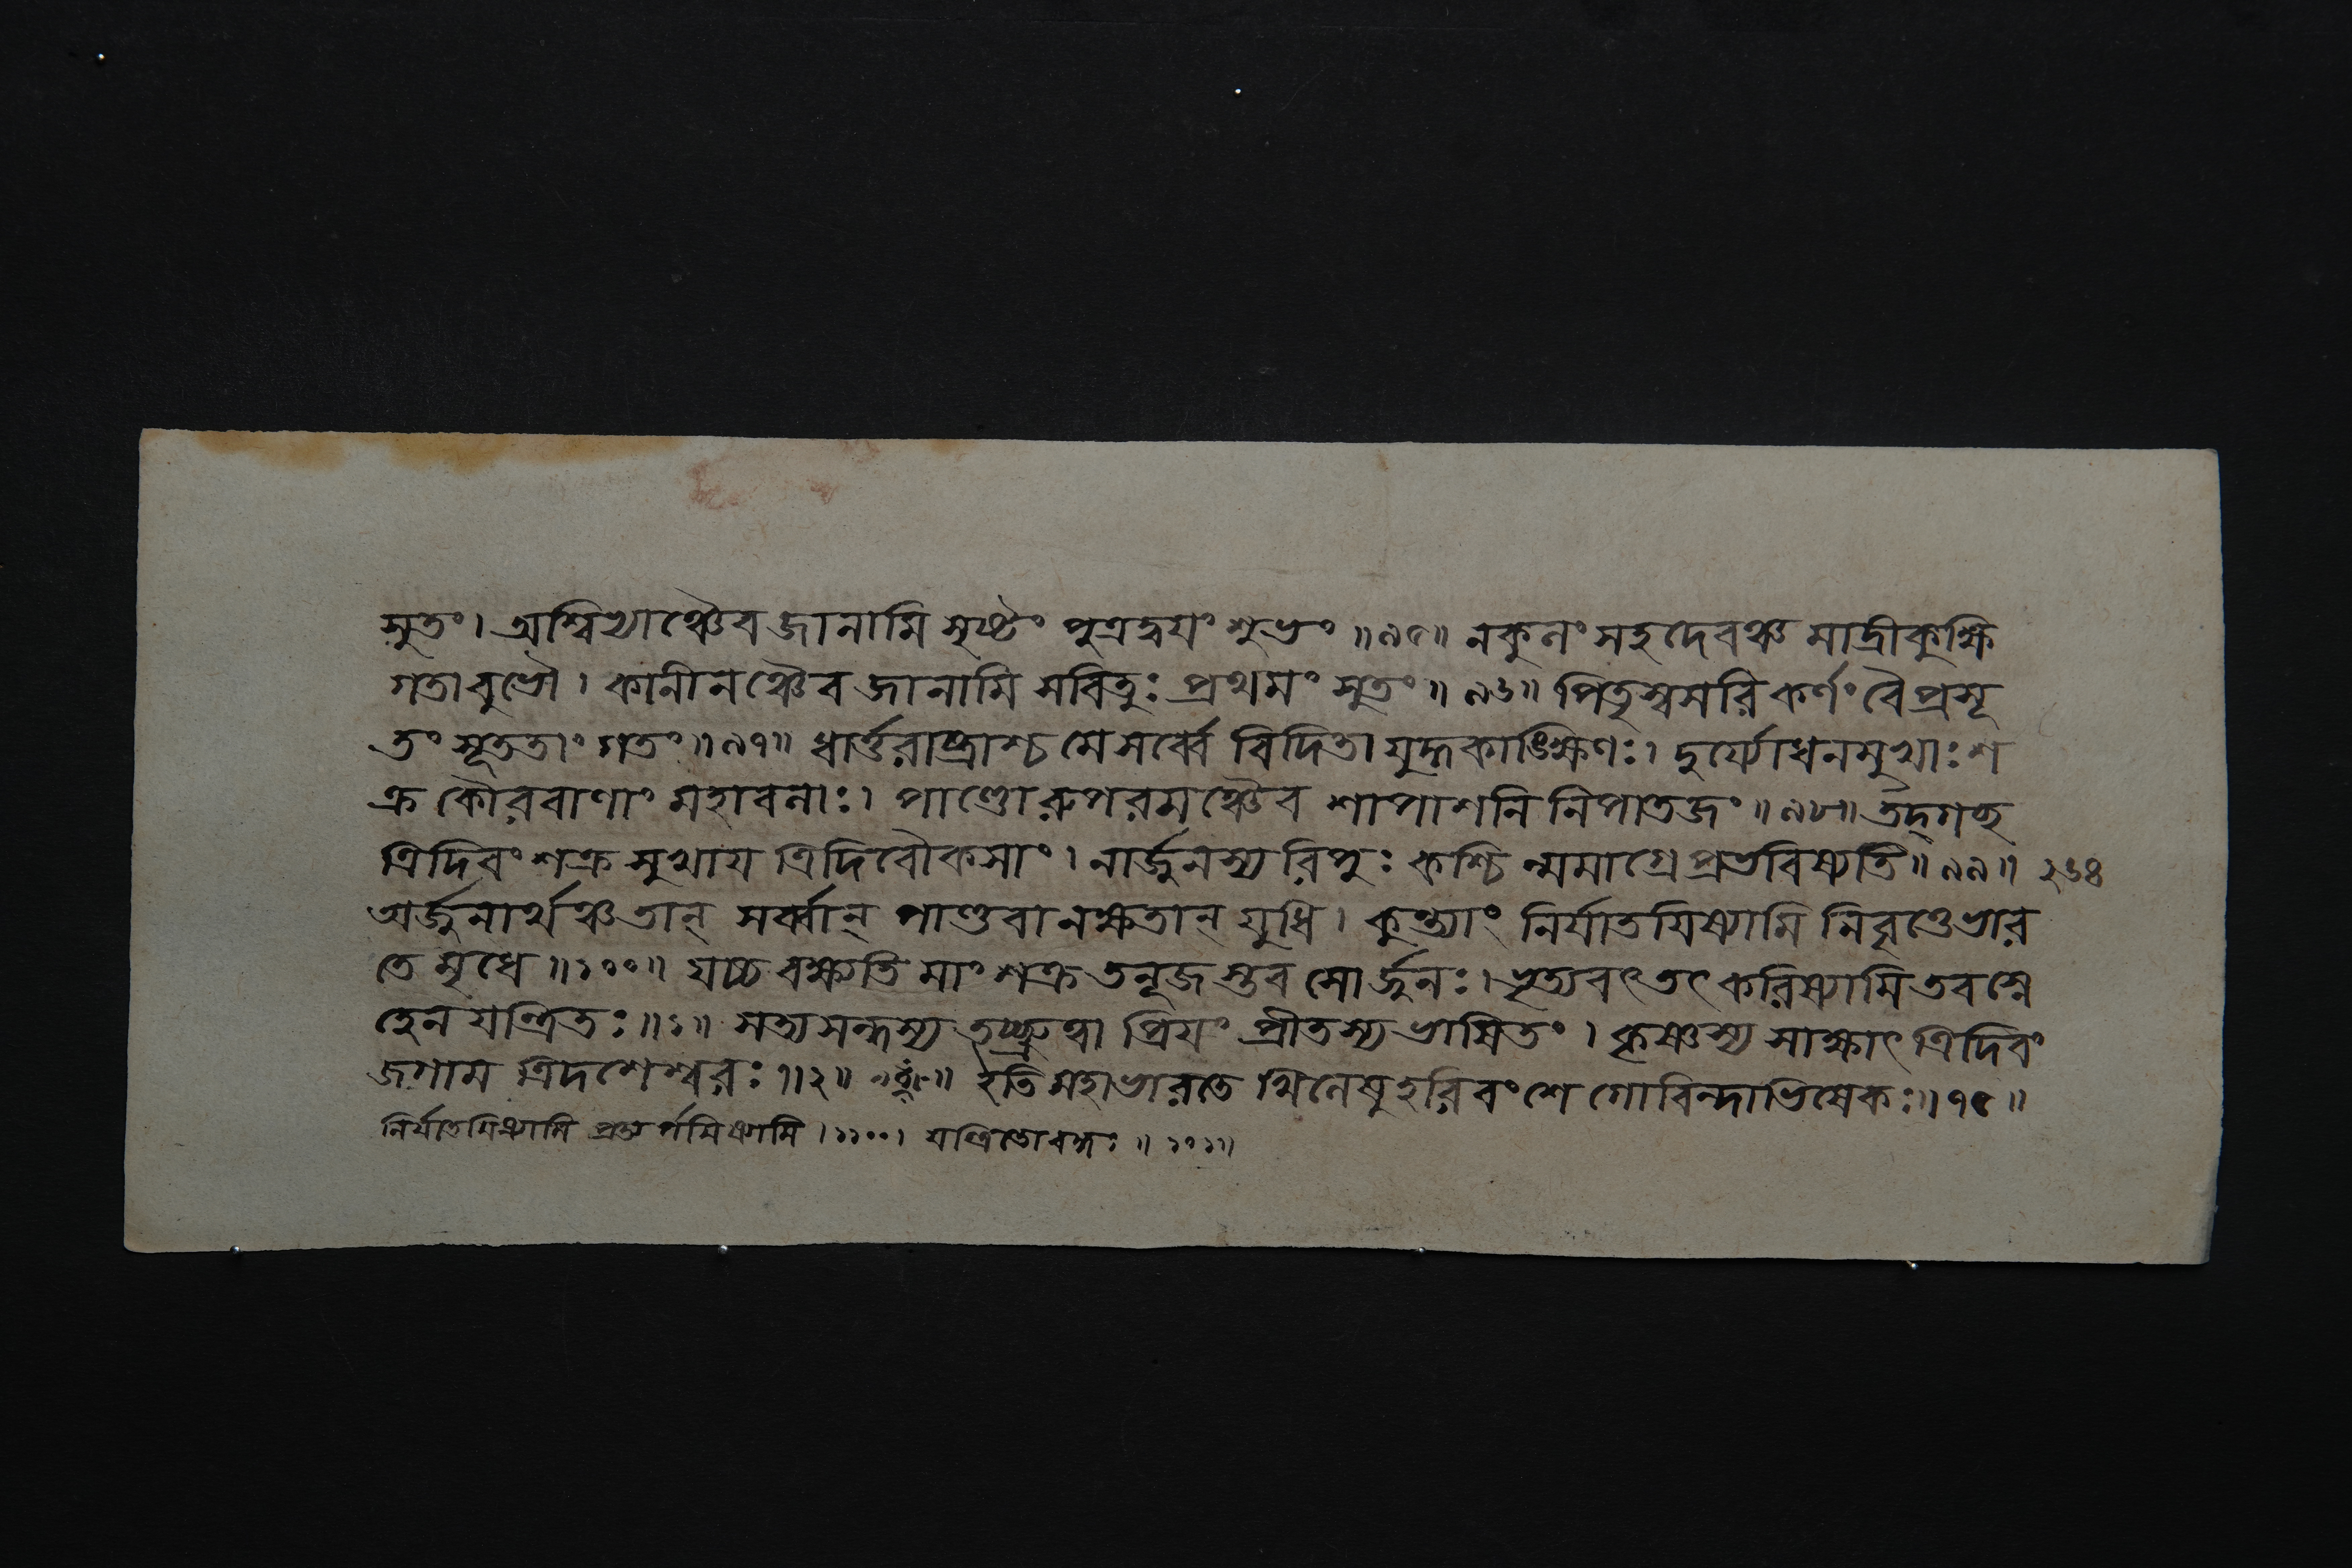 সুতং। অশ্বিভ্যাঞ্চৈব জানামি সৃষ্টং পুত্রদ্বয়ং শুভং ॥৯৫॥ নকুলং সহদেবঞ্চ মাদ্রীকুক্ষি
গতাবুভৌ। কানীনঞ্চৈব জানামি সবিতুঃ প্রথমং সুতং ॥৯৬॥ পিতৃস্বসরি কর্ণং বৈ প্রসূ
তং সূততাং গতং ॥৯৭॥ ধার্ত্তরাষ্ট্রাশ্চ মে সর্ব্বে বিদিতা যুদ্ধকাঙ্ক্ষিণঃ। দুর্য্যোধনমুখাঃ শ
ক্র কৌরবাণাং মহাবলাঃ। পাণ্ডোরুপরমঞ্চৈব শাপাশনি নিপাতজং ॥৯৮॥ তদ্গচ্ছ
ত্রিদিবং শক্র সুখায় ত্রিদিবৌকসাং। নার্জুনস্য রিপুঃ কশ্চিন্মমাগ্রে প্রভবিষ্যতি ॥৯৯॥ ২৬৪
অর্জুনার্থঞ্চ তান্ সর্ব্বান্ পাণ্ডবানক্ষতান্ যুধি। কুন্ত্যাং নির্যাতয়িষ্যামি নিবৃত্তে ভার
তে মৃধে ॥১০০॥ যচ্চ বক্ষ্যতি মাং শক্র তনূজস্তব সোর্জুনঃ। ভৃত্যবৎ তৎ করিষ্যামি তব স্নে
হেন যন্ত্রিতঃ ॥১॥ সত্যসন্ধস্য তচ্ছ্রুত্বা প্রিয়ং প্রীতস্য ভাষিতং। কৃষ্ণস্য সাক্ষাৎ ত্রিদিবং
জগাম ত্রিদশেশ্বরঃ ॥২॥ ইতি মহাভারতে খিলেষু হরিবংশে গোবিন্দাভিষেকঃ ॥৭৫॥
নির্যাতয়িষ্যামি প্রত্যর্পয়িষ্যামি। ১১০০। যন্ত্রিতোবদ্ধঃ ॥ ১০১॥